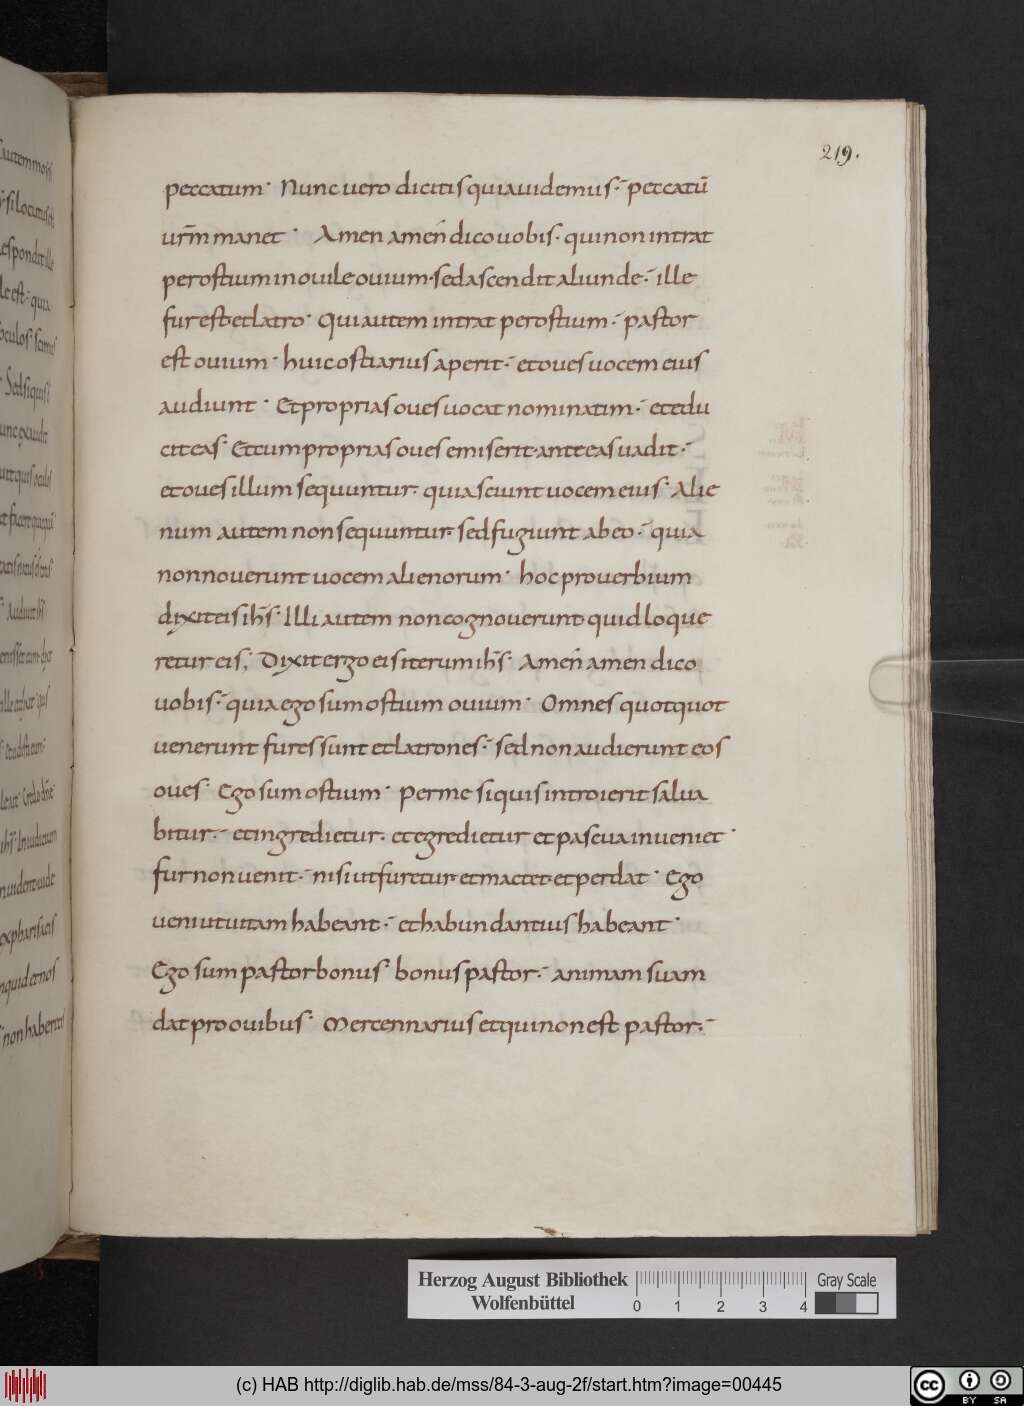 219.
peccatum· Nunc uero dicitis quia uidemus·- peccatū
urm̄ manet· Amen amen dico uobis· qui non intrat
per ostium in ouile ouium· sed ascendit aliunde·- ille
fur est· et latro· Qui autem intrat per ostium·- pastor
est ouium· huic ostiarius aperit·- et oues uocem eius
audiunt· Et proprias oues uocat nominatim·- et edu
cit eas· Et cum proprias oues emiserit· ante eas uadit·-
et oues illum sequuntur· quia sciunt uocem eius· Alie
num autem non sequuntur· sed fugiunt ab eo·- quia
non nouerunt uocem alienorum· hoc prouerbium
dixit eis ih̄s· Illi autem non cognouerunt quid loque
retur eis; Dixit ergo eis iterum ih̄s· Amen amen dico
uobis·- quia ego sum ostium ouium· Omnes quotquot
uenerunt fures sunt et latrones·- sed non audierunt eos
oues· Ego sum ostium· Per me si quis introierit salua
bitur·- et ingredietur· et egredietur et pascua inueniet·
fur non uenit·- nisi ut furetur· et mactet· et perdat· Ego
ueni ut uitam habeant·- et habundantius habeant·
Ego sum pastor bonus· bonus pastor·- animam suam
dat pro ouibus· Mercennarius et qui non est pastor·-
Herzog August Bibliothek
Wolfenbüttel
0 1 2 3 4
Gray Scale
(c) HAB http://diglib.hab.de/mss/84-3-aug-2f/start.htm?image=00445
cc BY SA